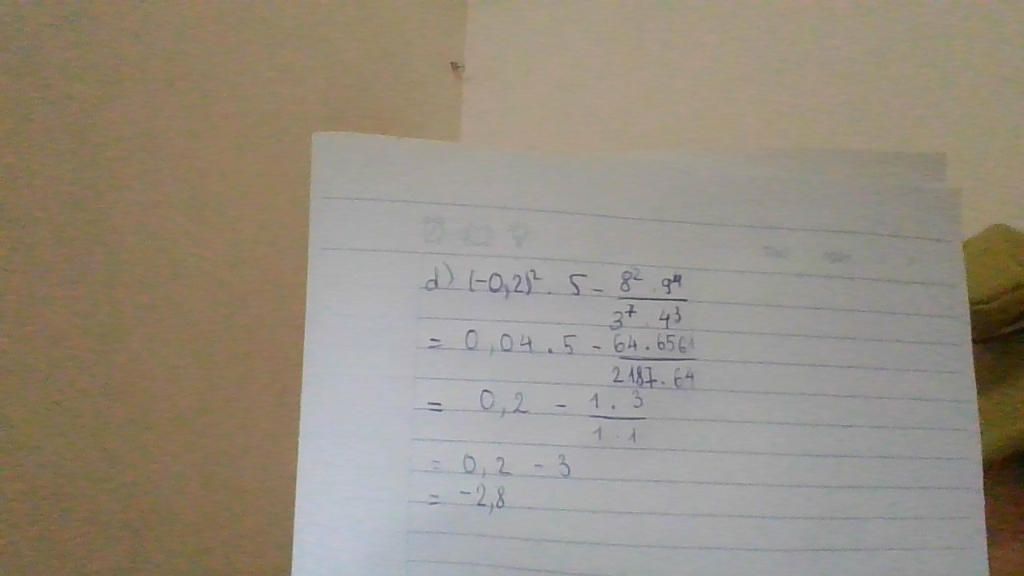 d) (-0,2)² . 5 - (8² . 9⁴)/(3⁷ . 4³)
= 0,04 . 5 - (64 . 6561)/(2187 . 64)
= 0,2 - (1 . 3)/(1 . 1)
= 0,2 - 3
= -2,8